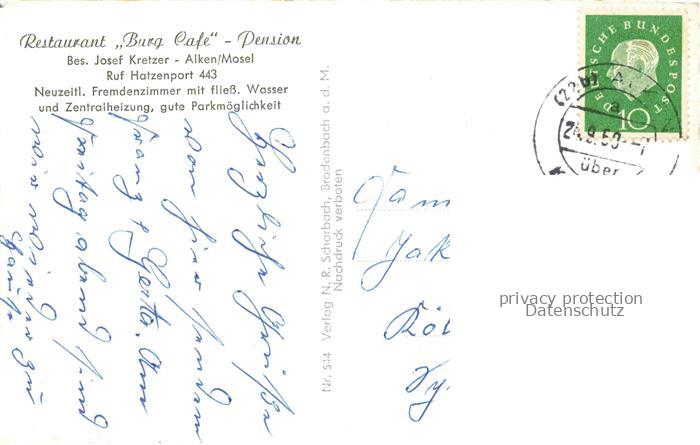 Restaurant „Burg Cafe" - Pension
Bes. Josef Kretzer - Alken/Mosel
Ruf Hatzenport 443
Neuzeitl. Fremdenzimmer mit fließ. Wasser
und Zentralheizung, gute Parkmöglichkeit
Herzliche Grüße
von hier senden
Franz &
Freitag abend sind
wir wieder zu
Hause
Nr. 544 Verlag N. R. Scharbach, Brodenbach a. d. M.
Nachdruck verboten
Fam
Jak
Köl
DEUTSCHE BUNDESPOST
10
(22b)
a
über
privacy protection
Datenschutz